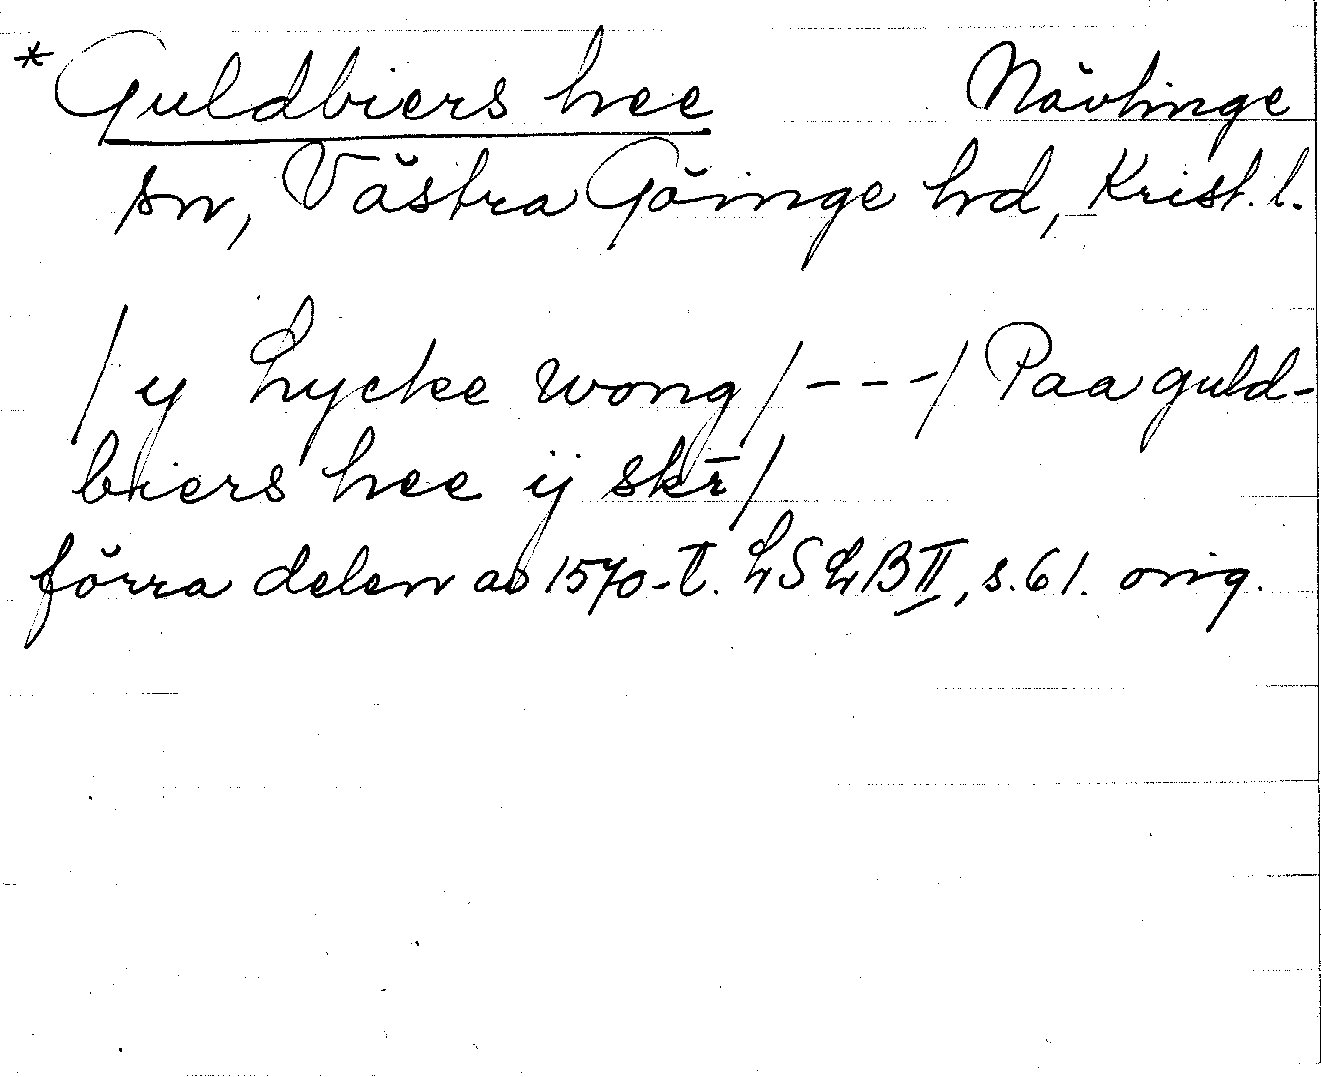 * Guldbiers hee Nävlinge
sn, Västra Göinge hd, Krist. l.
/y Lycke wong/---/Paa guld-
biers hee ij skr̄/
förra delen av 1570-t. LSLB II, s. 61. orig.